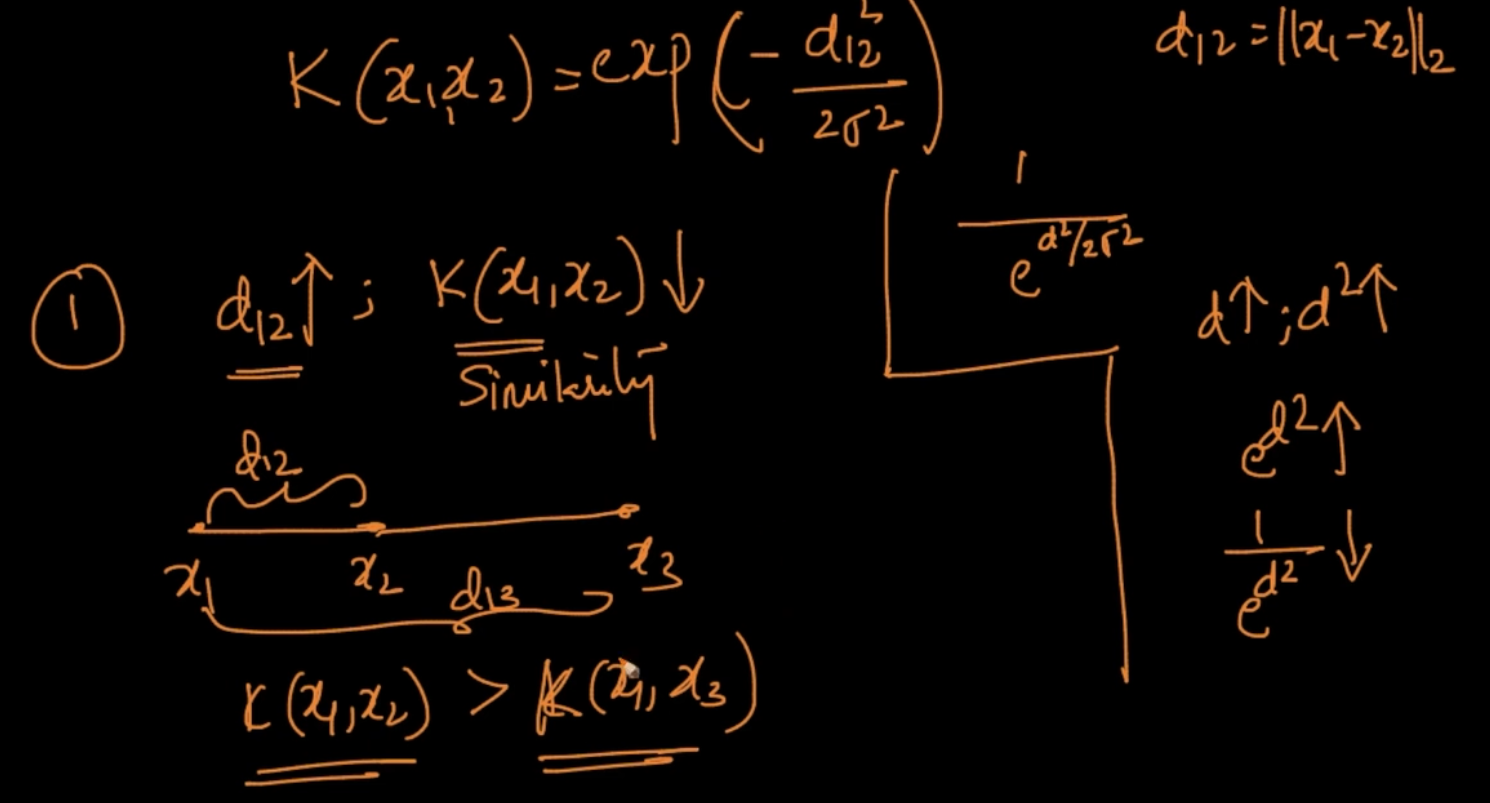 K(x₁,x₂) = exp(-d₁₂²/2σ²)
d₁₂ = ||x₁-x₂||₂
1/e^(d²/2σ²)
① d₁₂↑; K(x₁,x₂)↓
Similarity
d↑; d²↑
e^(d²)↑
1/e^(d²)↓
d₁₂
x₁ x₂ x₃
d₁₃
K(x₁,x₂) > K(x₁,x₃)